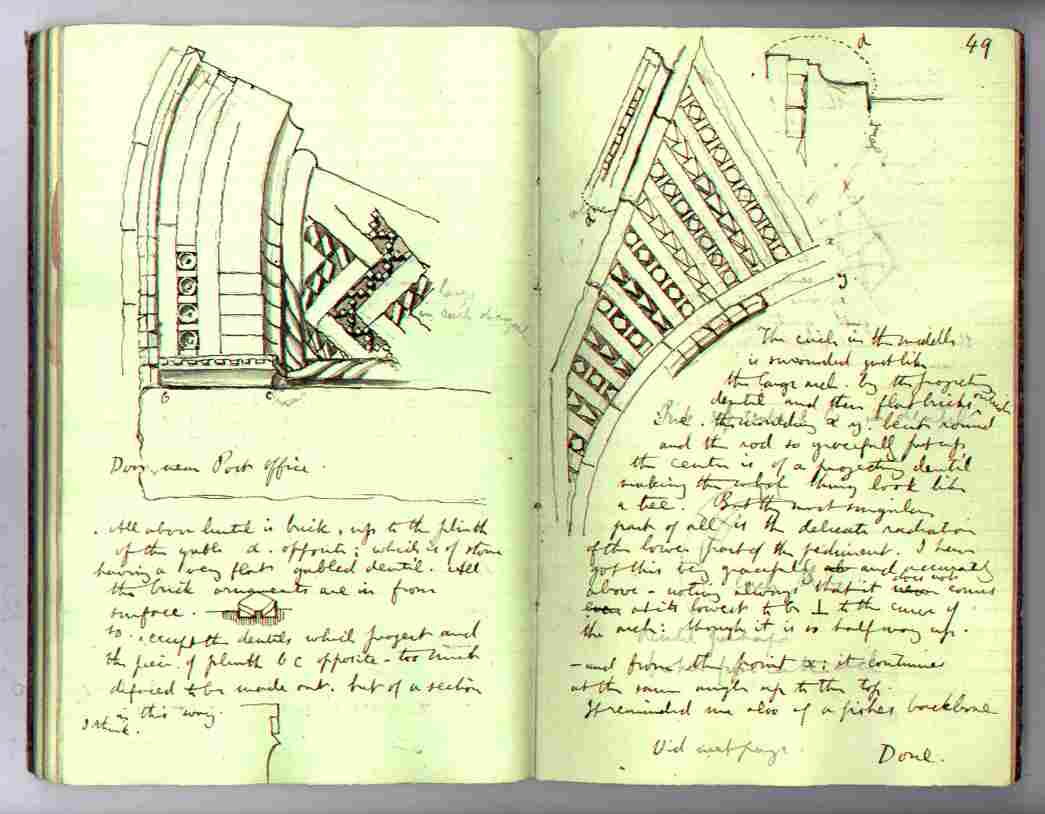 Door, near Post office.
. All above lintel is brick, up to the plinth
of the gable d. opposite; which is of stone
having a very flat gabled dentil. All
the brick ornaments are in front
surface.
so. except the dentils which project and
the piece of plinth b c opposite - too much
defaced to be made out. but of a section
in this way.
I think.
b c
49
d
d
x
y
The circle in the middle
is surrounded just like
the large arch. by the projecting
dentil and then flat bricks outside
the moulding x y. bent round
and the rod so gracefully
the center is of a projecting dentil
making the whole thing look like
a tree. But the most singular
part of all is the delicate radiation
of the lower part of the pediment. I have
got this very gracefully and accurately
above - noting always that it does not come
at its lowest to be ⊥ to the curve of
the arch: though it is so halfway up.
- and from the point x: it continues
at the same angle up to the top.
It reminded me also of a fishes backbone
Vid next page.
Done.